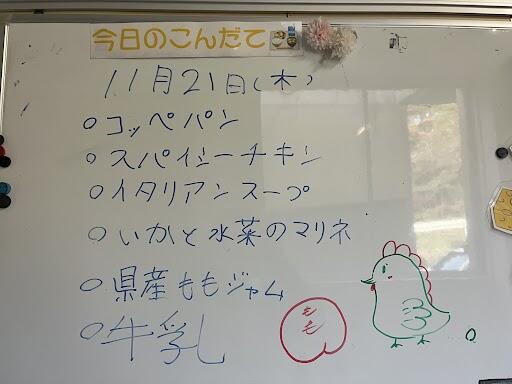 今日のこんだて
11月21日(木)
○コッペパン
○スパイシーチキン
○イタリアンスープ
○いかと水菜のマリネ
○県産ももジャム
○牛乳
もも